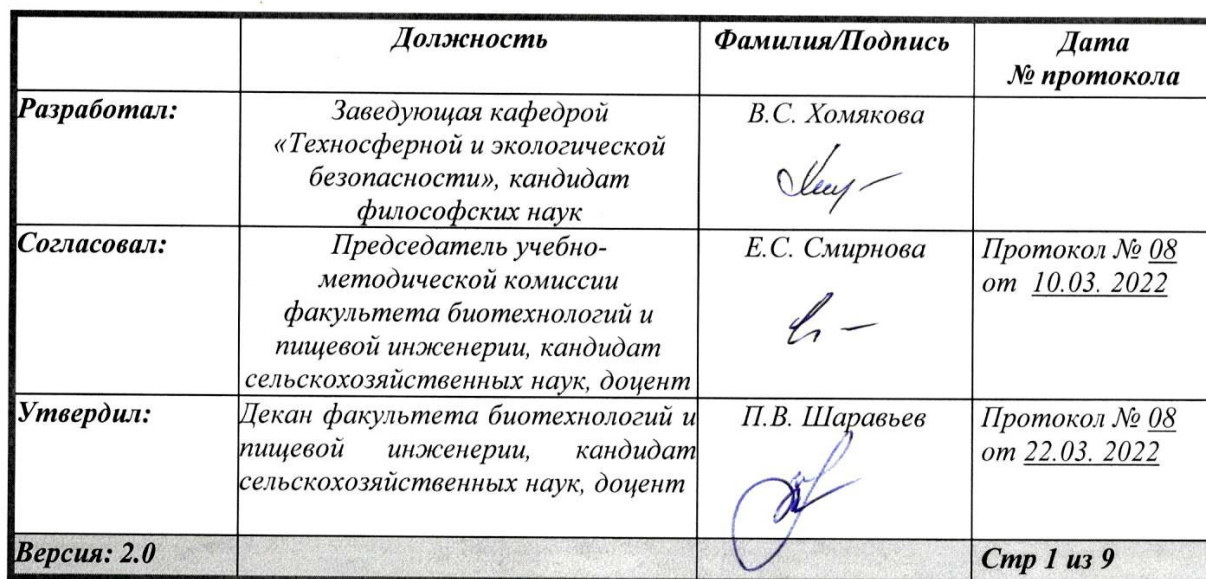 Должность
Фамилия/Подпись
Дата
№ протокола
Разработал:
Заведующая кафедрой
«Техносферной и экологической
безопасности», кандидат
философских наук
В.С. Хомякова
Согласовал:
Председатель учебно-
методической комиссии
факультета биотехнологий и
пищевой инженерии, кандидат
сельскохозяйственных наук, доцент
Е.С. Смирнова
Протокол № 08
от 10.03. 2022
Утвердил:
Декан факультета биотехнологий и
пищевой инженерии, кандидат
сельскохозяйственных наук, доцент
П.В. Шаравьев
Протокол № 08
от 22.03. 2022
Версия: 2.0
Стр 1 из 9